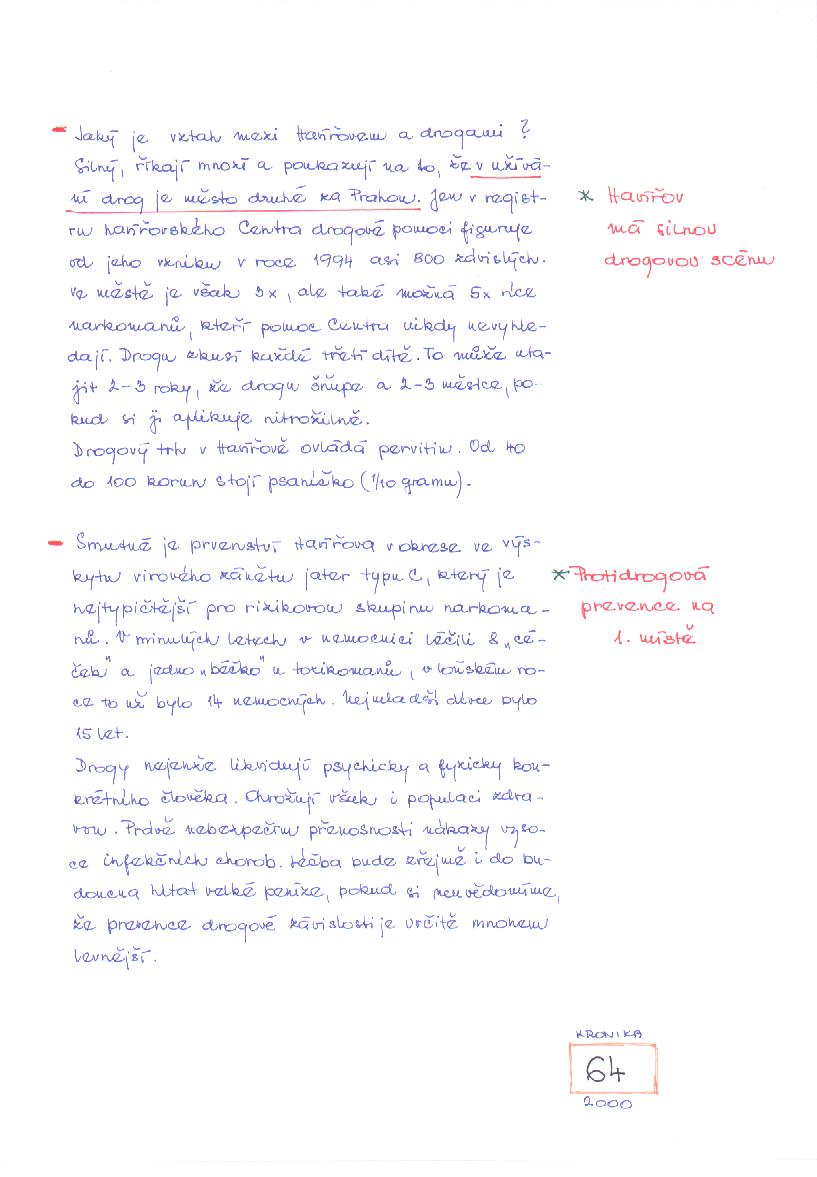 – Jaký je vztah mezi Havířovem a drogami ?
Silný, říkají mnozí a poukazují na to, že v užívá-
ní drog je město druhé za Prahou. Jen v regist-
ru havířovského Centra drogové pomoci figuruje
od jeho vzniku v roce 1994 asi 800 závislých.
Ve městě je však 3x, ale také možná 5x více
narkomanů, kteří pomoc Centra nikdy nevyhle-
dají. Drogu zkusí každé třetí dítě. To může uta-
jit 2-3 roky, že drogu šňupe a 2-3 měsíce, po-
kud si ji aplikuje nitrožilně.
Drogový trh v Havířově ovládá pervitin. Od 40
do 100 korun stojí psaníčko (1/10 gramu).
* Havířov
má silnou
drogovou scénu
– Smutné je prvenství Havířova v okrese ve výs-
kytu virového zánětu jater typu C, který je
nejtypičtější pro rizikovou skupinu narkoma-
nů. V minulých letech v nemocnici léčili 8 „cé-
ček" a jedno „béčko" u toxikomanů, v loňském ro-
ce to už bylo 14 nemocných. Nejmladší dívce bylo
15 let.
Drogy nejenže likvidují psychicky a fyzicky kon-
krétního člověka. Ohrožují však i populaci zdra-
vou. Právě nebezpečím přenosnosti nákazy vyso-
ce infekčních chorob. Léčba bude zřejmě i do bu-
doucna hltat velké peníze, pokud si neuvědomíme,
že prevence drogové závislosti je určitě mnohem
levnější.
* Protidrogová
prevence na
1. místě
KRONIKA
64
2000